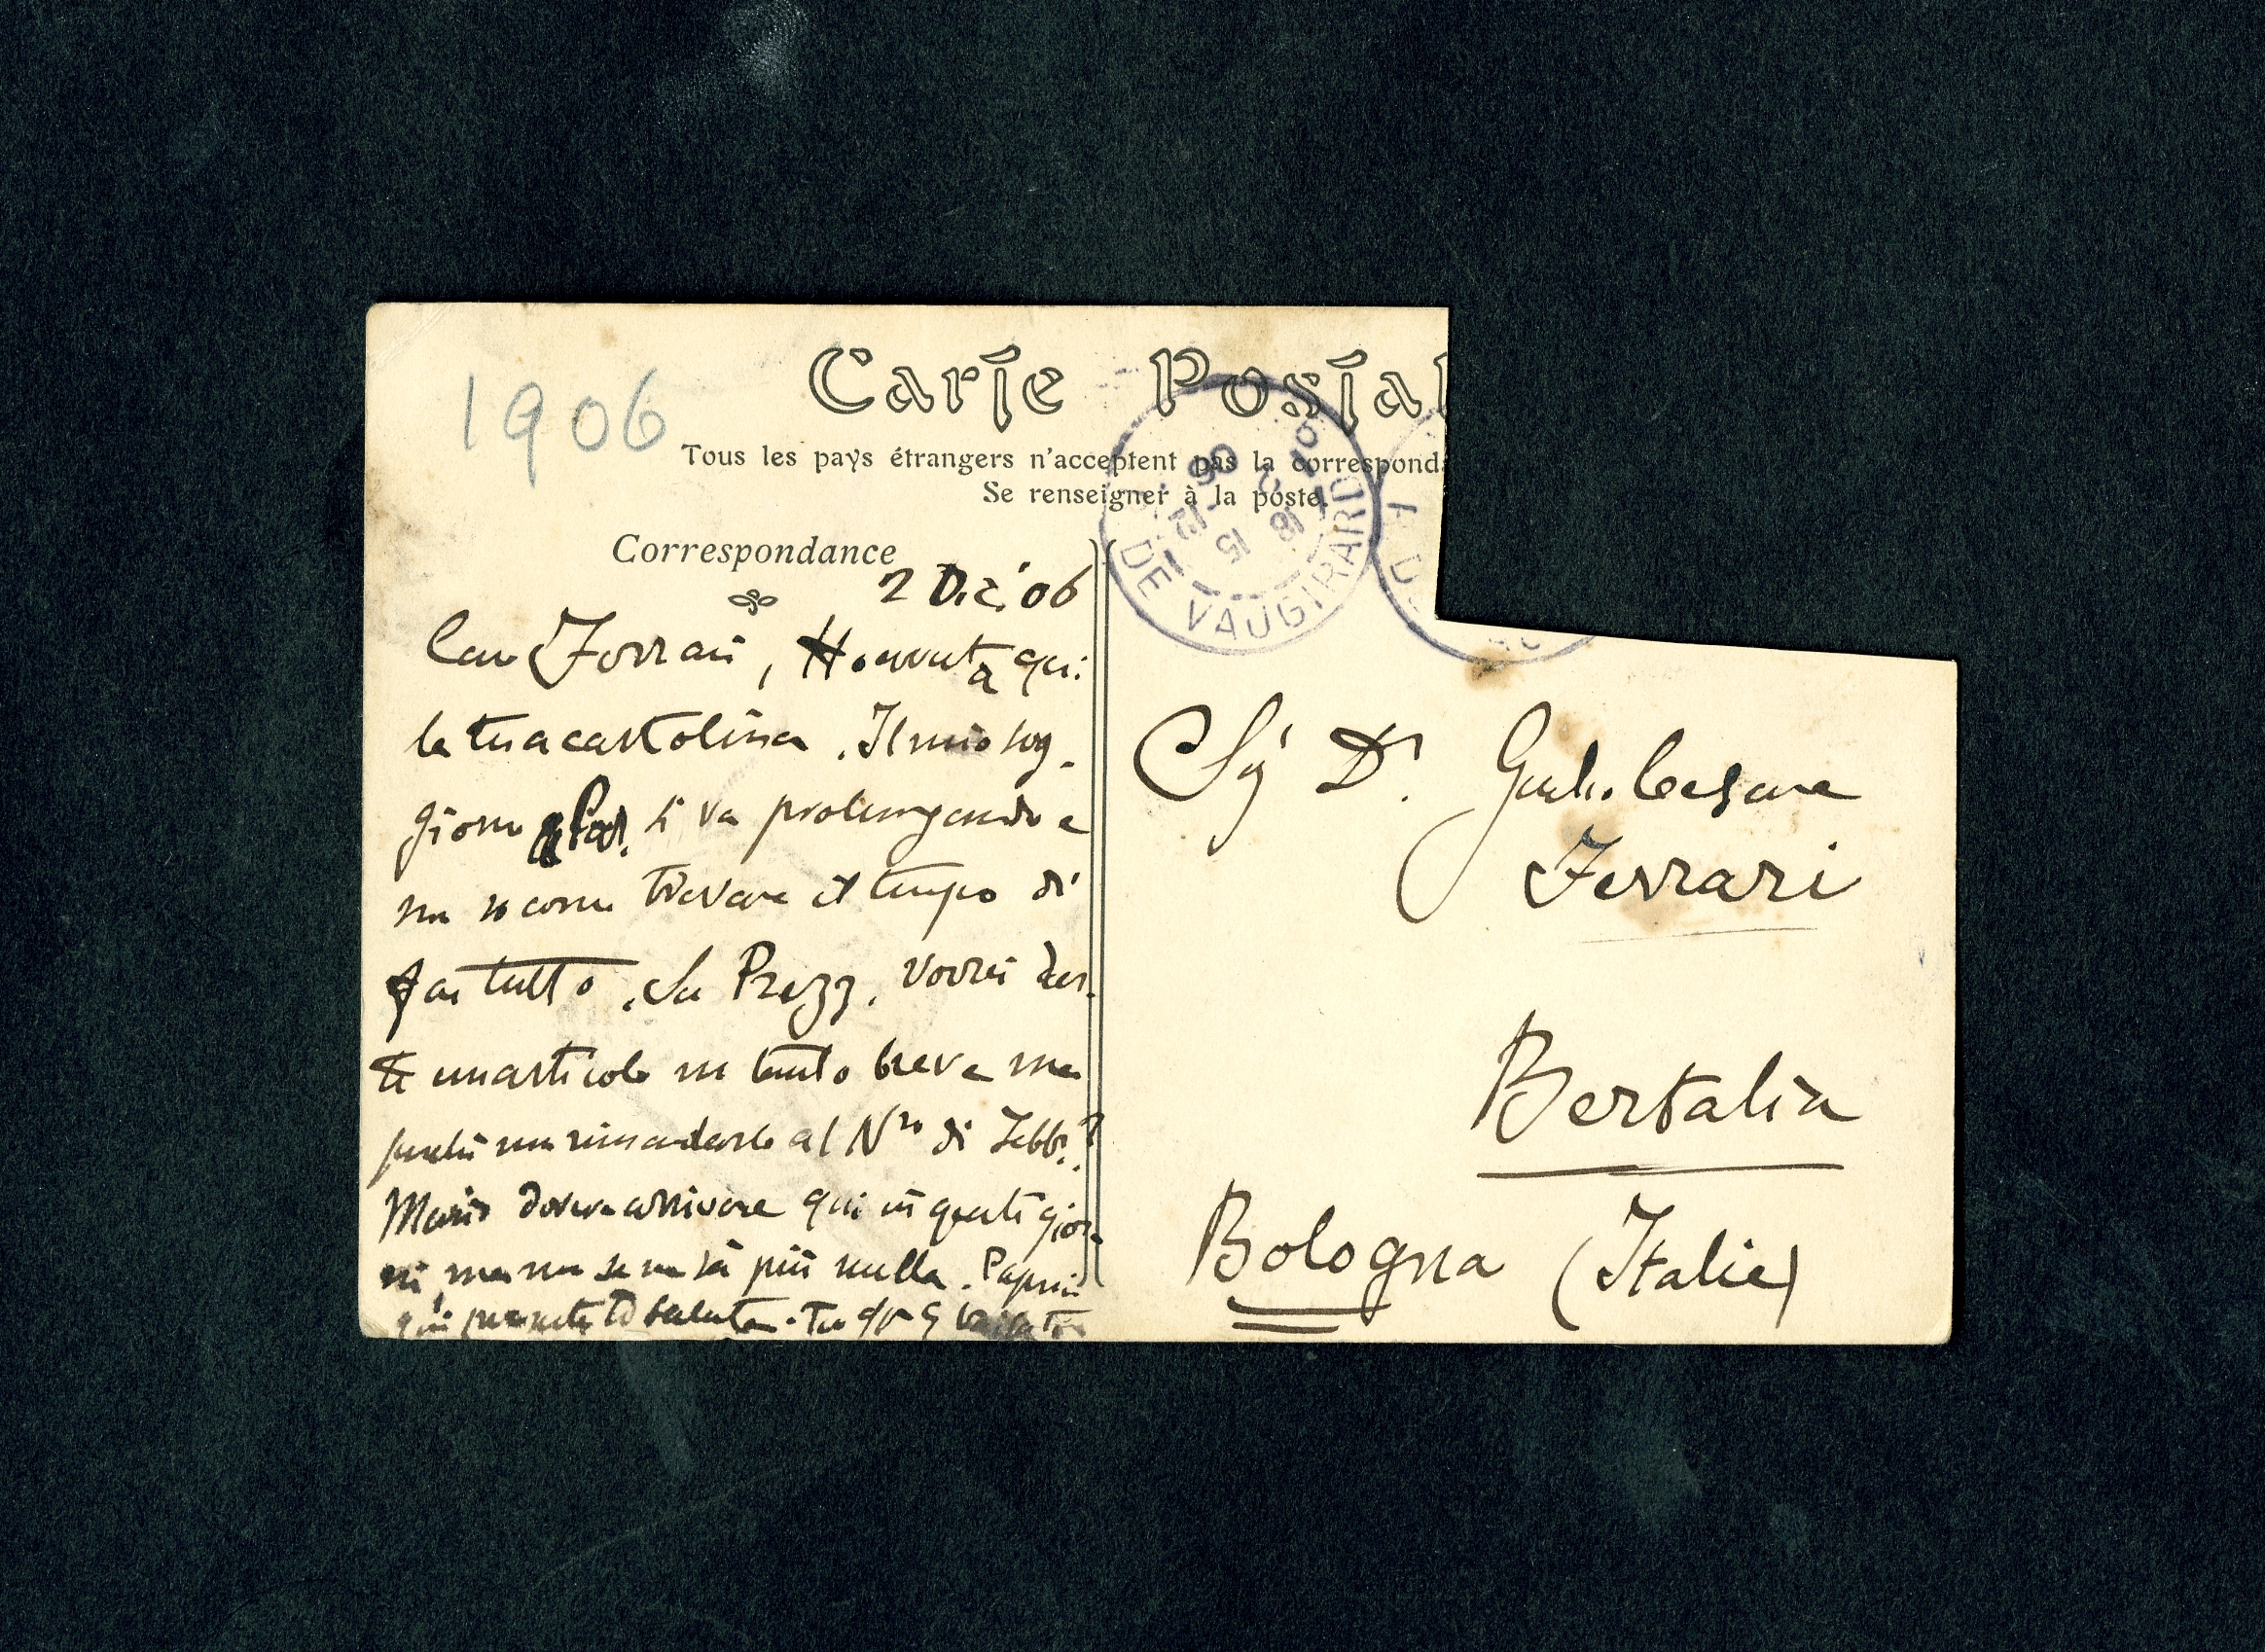 1906
Carte Postal
Tous les pays étrangers n'acceptent pas la corresponda
Se renseigner à la poste.
Correspondance
DE VAUGIRARD
18 15
2 -12
06
2 Dic. '06
Caro Ferrari, Ho avuta qui
la tua cartolina. Il mio sog-
giorno a Par. si va prolungando e
non so come trovare il tempo di
far tutto. Su Prezz. vorrei dar-
ti un articolo un tanto breve ma
perché non rimandarlo al N.ro di Febbr.?
Mario doveva arrivare qui in questi gior-
ni, ma non se ne sa più nulla. Papini
qui presente ti saluta. Tuo
Sig. Dr. Giulio Cesare
Ferrari
Bertalia
Bologna (Italie)